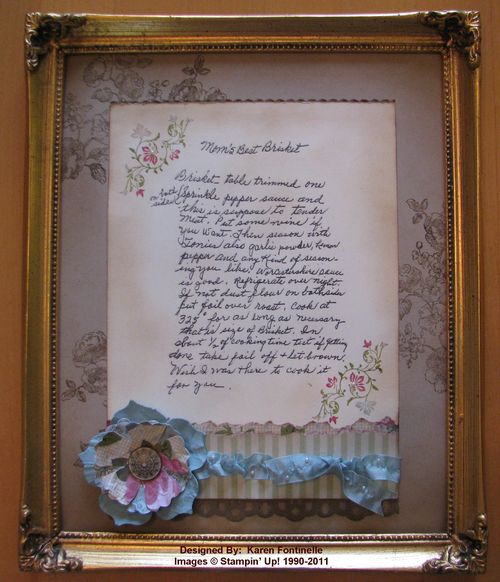 Mom's Best Brisket
Brisket table trimmed one
on both sides
Sprinkle pepper sauce and
this is suppose to tender
meat. Put some wine if
you want. Then season with
Tonies also garlic powder,
pepper and any kind of season-
ing you like. Worcestershire sauce
is good. Refrigerate over night.
If not dust flour on bothsides
put foil over roast. Cook at
325° for as long as necessary
that is size of Brisket. In
about ½ of cooking time test if getting
done take foil off + let brown.
Wish I was there to cook it
for you.
Designed By: Karen Fontinelle
Images © Stampin' Up! 1990-2011